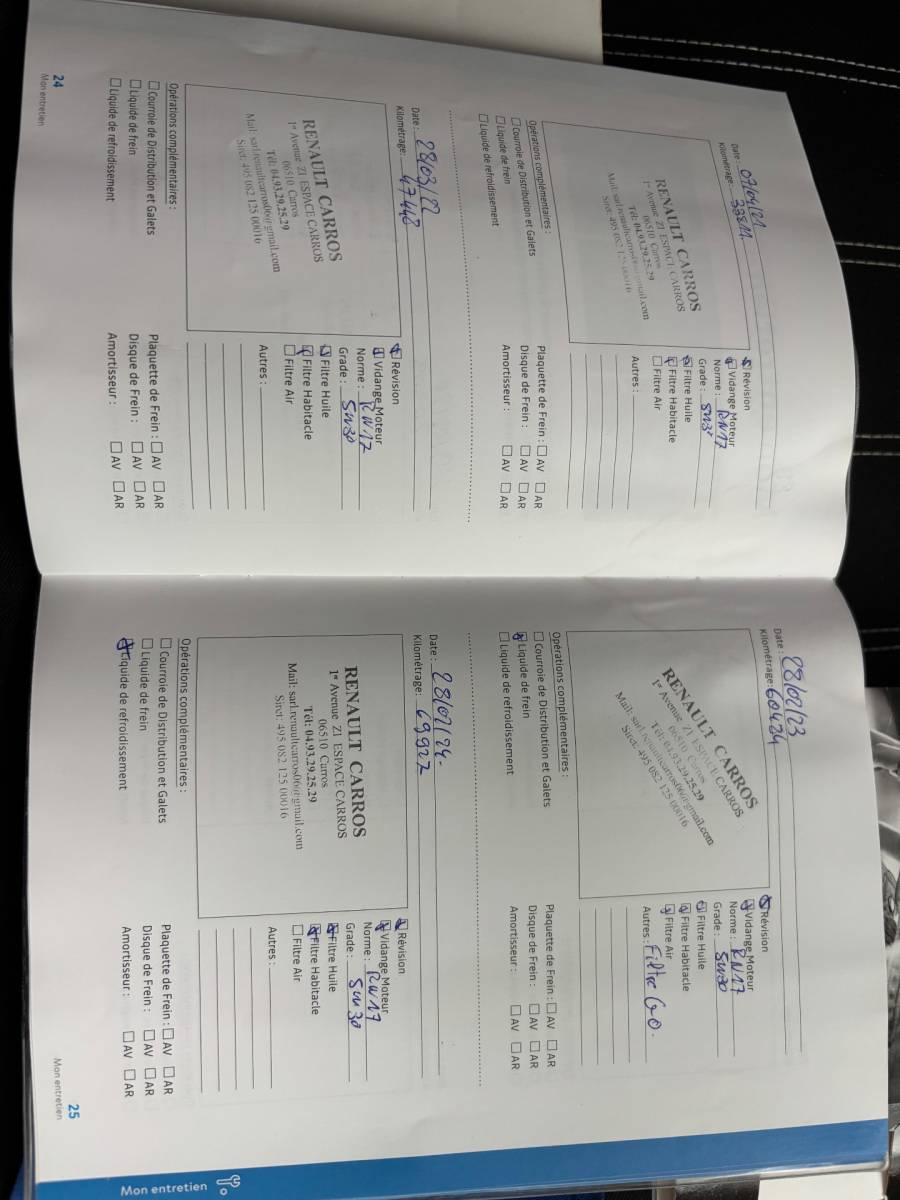 Date : 07/04/21
Kilométrage : 33811
RENAULT CARROS
1re Avenue ZI ESPACE CARROS
06510 Carros
Tél: 04.93.29.25.29
Mail: sarl.renaultcarros06@gmail.com
Siret: 495 082 125 00016
Révision
Vidange Moteur
Norme : RN17
Grade : 5W30
Filtre Huile
Filtre Habitacle
Filtre Air
Autres :
Opérations complémentaires :
Courroie de Distribution et Galets
Liquide de frein
Liquide de refroidissement
Plaquette de Frein : AV AR
Disque de Frein : AV AR
Amortisseur : AV AR
Date : 28/03/22
Kilométrage : 47448
RENAULT CARROS
1re Avenue ZI ESPACE CARROS
06510 Carros
Tél: 04.93.29.25.29
Mail: sarl.renaultcarros06@gmail.com
Siret: 495 082 125 00016
Révision
Vidange Moteur
Norme : RN17
Grade : 5W30
Filtre Huile
Filtre Habitacle
Filtre Air
Autres :
Opérations complémentaires :
Courroie de Distribution et Galets
Liquide de frein
Liquide de refroidissement
Plaquette de Frein : AV AR
Disque de Frein : AV AR
Amortisseur : AV AR
24
Mon entretien
Date : 28/02/23
Kilométrage : 60424
RENAULT CARROS
1re Avenue ZI ESPACE CARROS
06510 Carros
Tél: 04.93.29.25.29
Mail: sarl.renaultcarros06@gmail.com
Siret: 495 082 125 00016
Révision
Vidange Moteur
Norme : RN17
Grade : 5W30
Filtre Huile
Filtre Habitacle
Filtre Air
Autres : Filtre GO.
Opérations complémentaires :
Courroie de Distribution et Galets
Liquide de frein
Liquide de refroidissement
Plaquette de Frein : AV AR
Disque de Frein : AV AR
Amortisseur : AV AR
Date : 28/02/24.
Kilométrage : 69927
RENAULT CARROS
1re Avenue ZI ESPACE CARROS
06510 Carros
Tél: 04.93.29.25.29
Mail: sarl.renaultcarros06@gmail.com
Siret: 495 082 125 00016
Révision
Vidange Moteur
Norme : RN17
Grade : 5W30
Filtre Huile
Filtre Habitacle
Filtre Air
Autres :
Opérations complémentaires :
Courroie de Distribution et Galets
Liquide de frein
Liquide de refroidissement
Plaquette de Frein : AV AR
Disque de Frein : AV AR
Amortisseur : AV AR
25
Mon entretien
Mon entretien